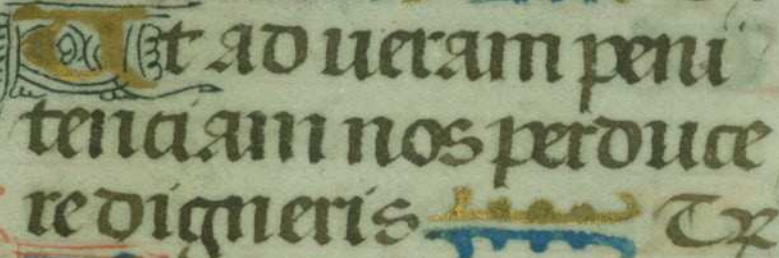 Ut ad ueram peni
tenciam nos perduce
re digneris Te